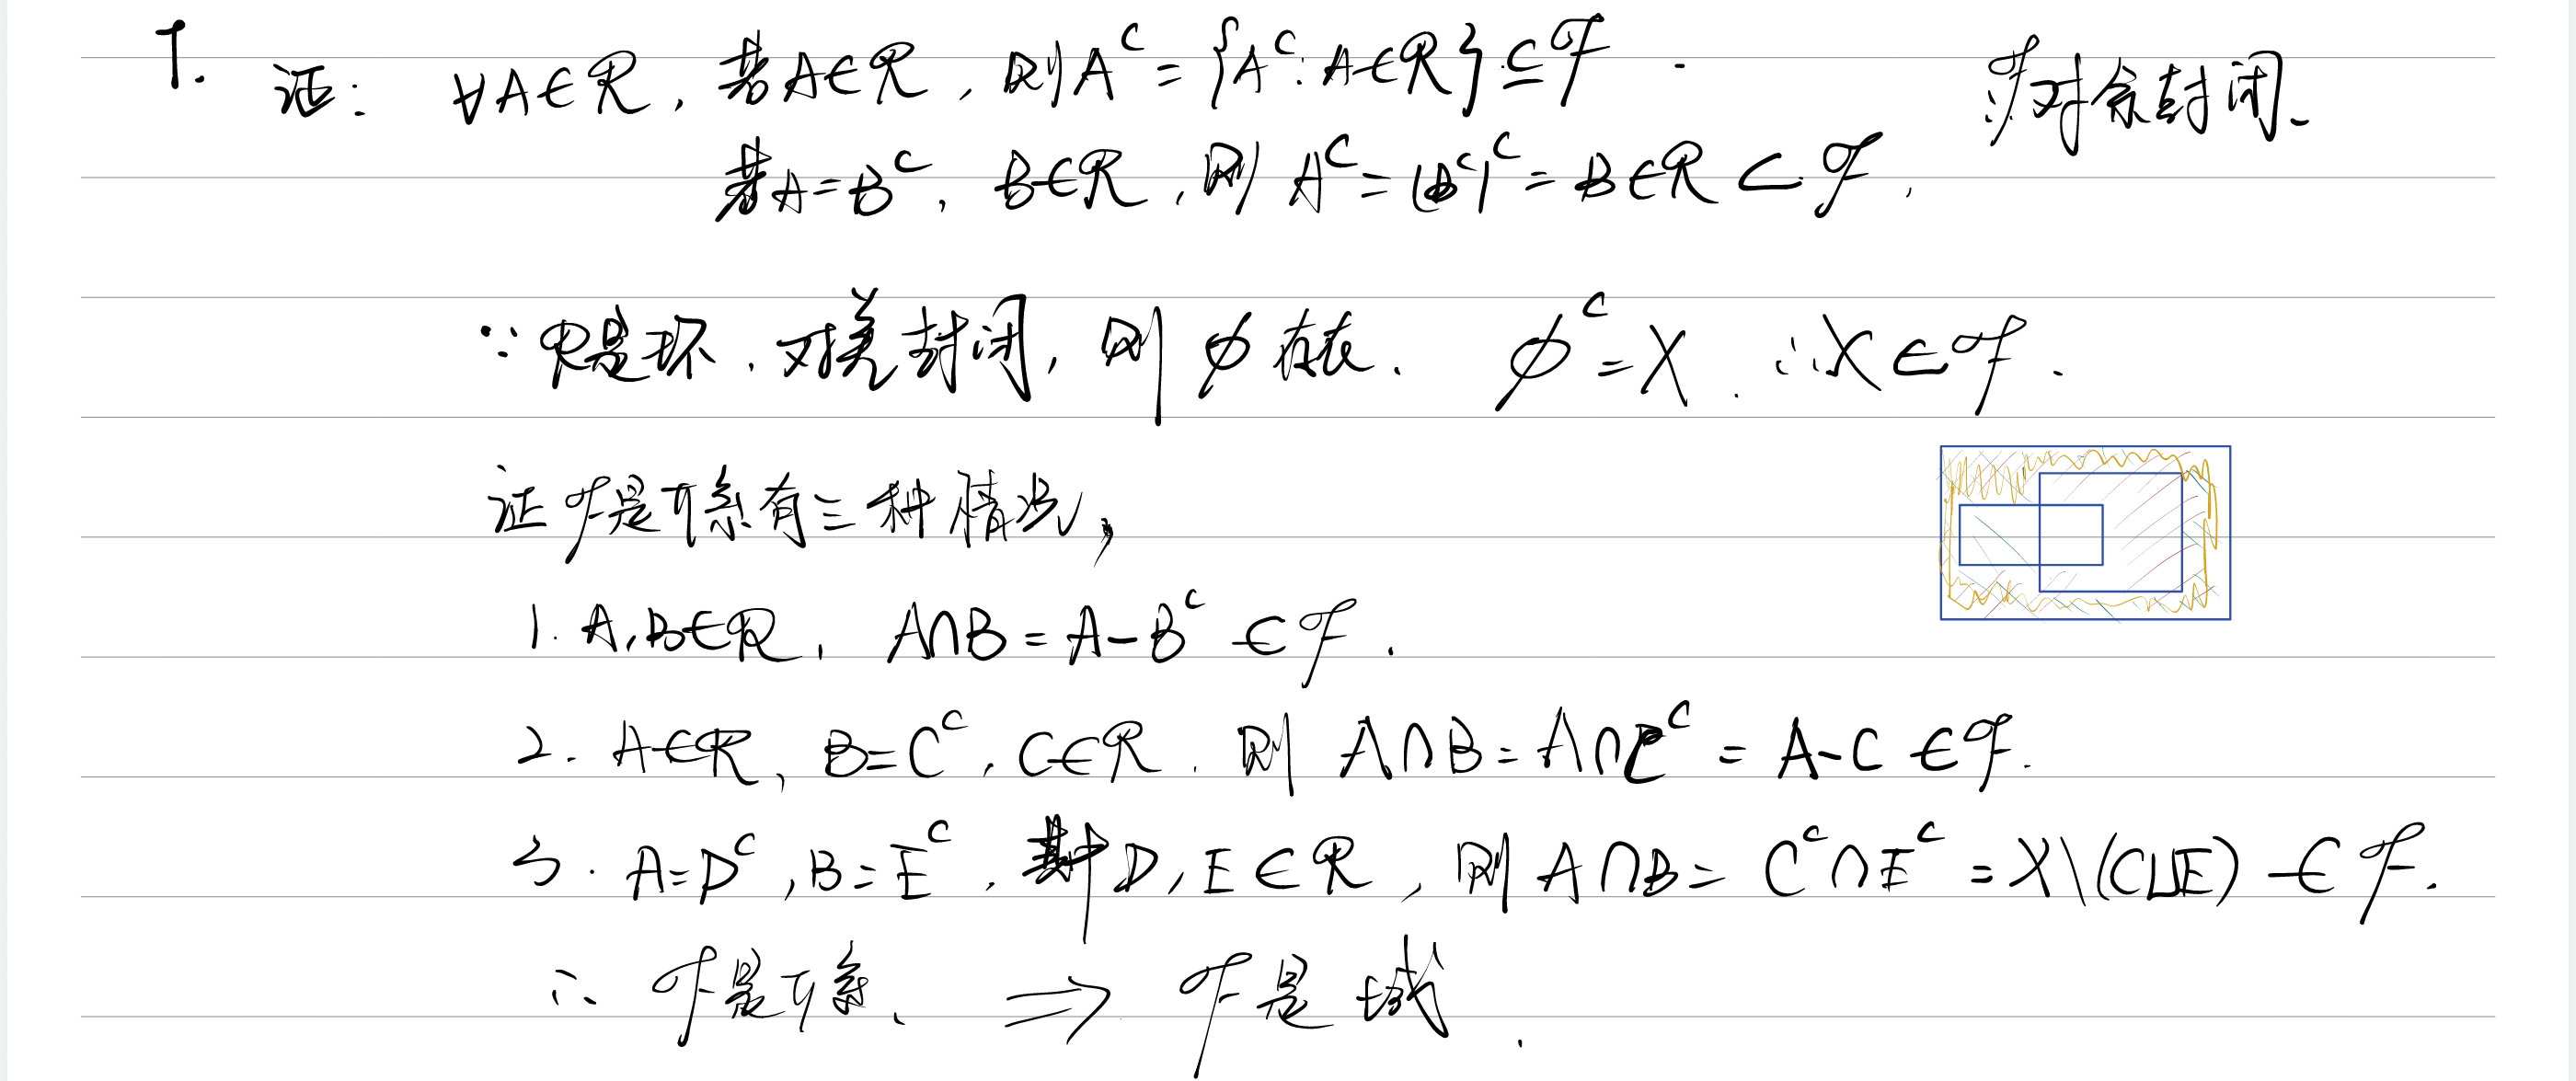 1. 证: ∀A∈R, 若A∈R, 则A^C = {A^C: A∈R}⊆F. F对余封闭.
若A=B^C, B∈R, 则 A^C = (B^C)^C = B∈R ⊂ F,
∵ R是环, 对差封闭, 则 ∅ 存在. ∅^C = X. ∴ X∈F.
证F是π系有三种情况,
1. A,B∈R, A∩B = A-B^C ∈F.
2. A∈R, B=C^C, C∈R. 则 A∩B = A∩C^C = A-C ∈F.
3. A=D^C, B=E^C, 其中D,E∈R, 则 A∩B = C^C∩E^C = X\(C∪E) ∈F.
∴ F是π系. ⇒ F是域.